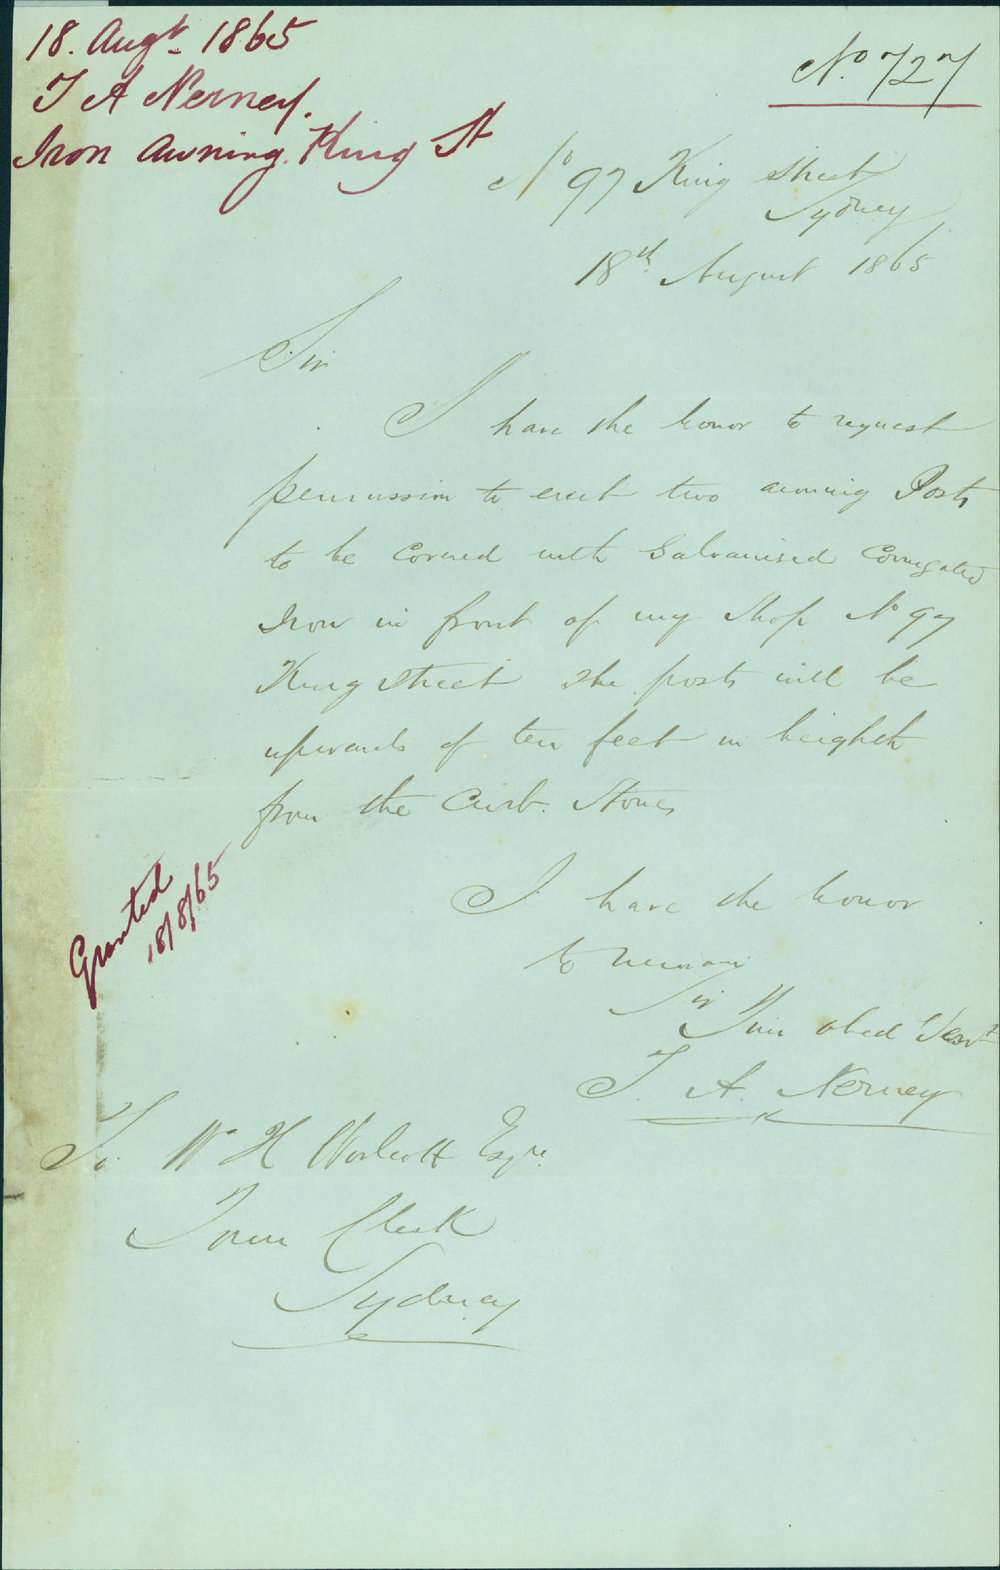 18. Augt. 1865
T A Nerney.
Iron Awning. King St
No. 727
No 97 King Street
Sydney
18th August 1865
Sir
I have the honor to request
permission to erect two awning Posts
to be Covered with Galvanised Corrugated
Iron in front of my Shop No 97
King Street The posts will be
upwards of ten feet in heighth
from the Curb. Stones
I have the honor
to remain
Sir
Your obed Servt
T. A. Nerney
Granted
18/8/65
To. W H Worlcott Esqre.
Town Clerk
Sydney